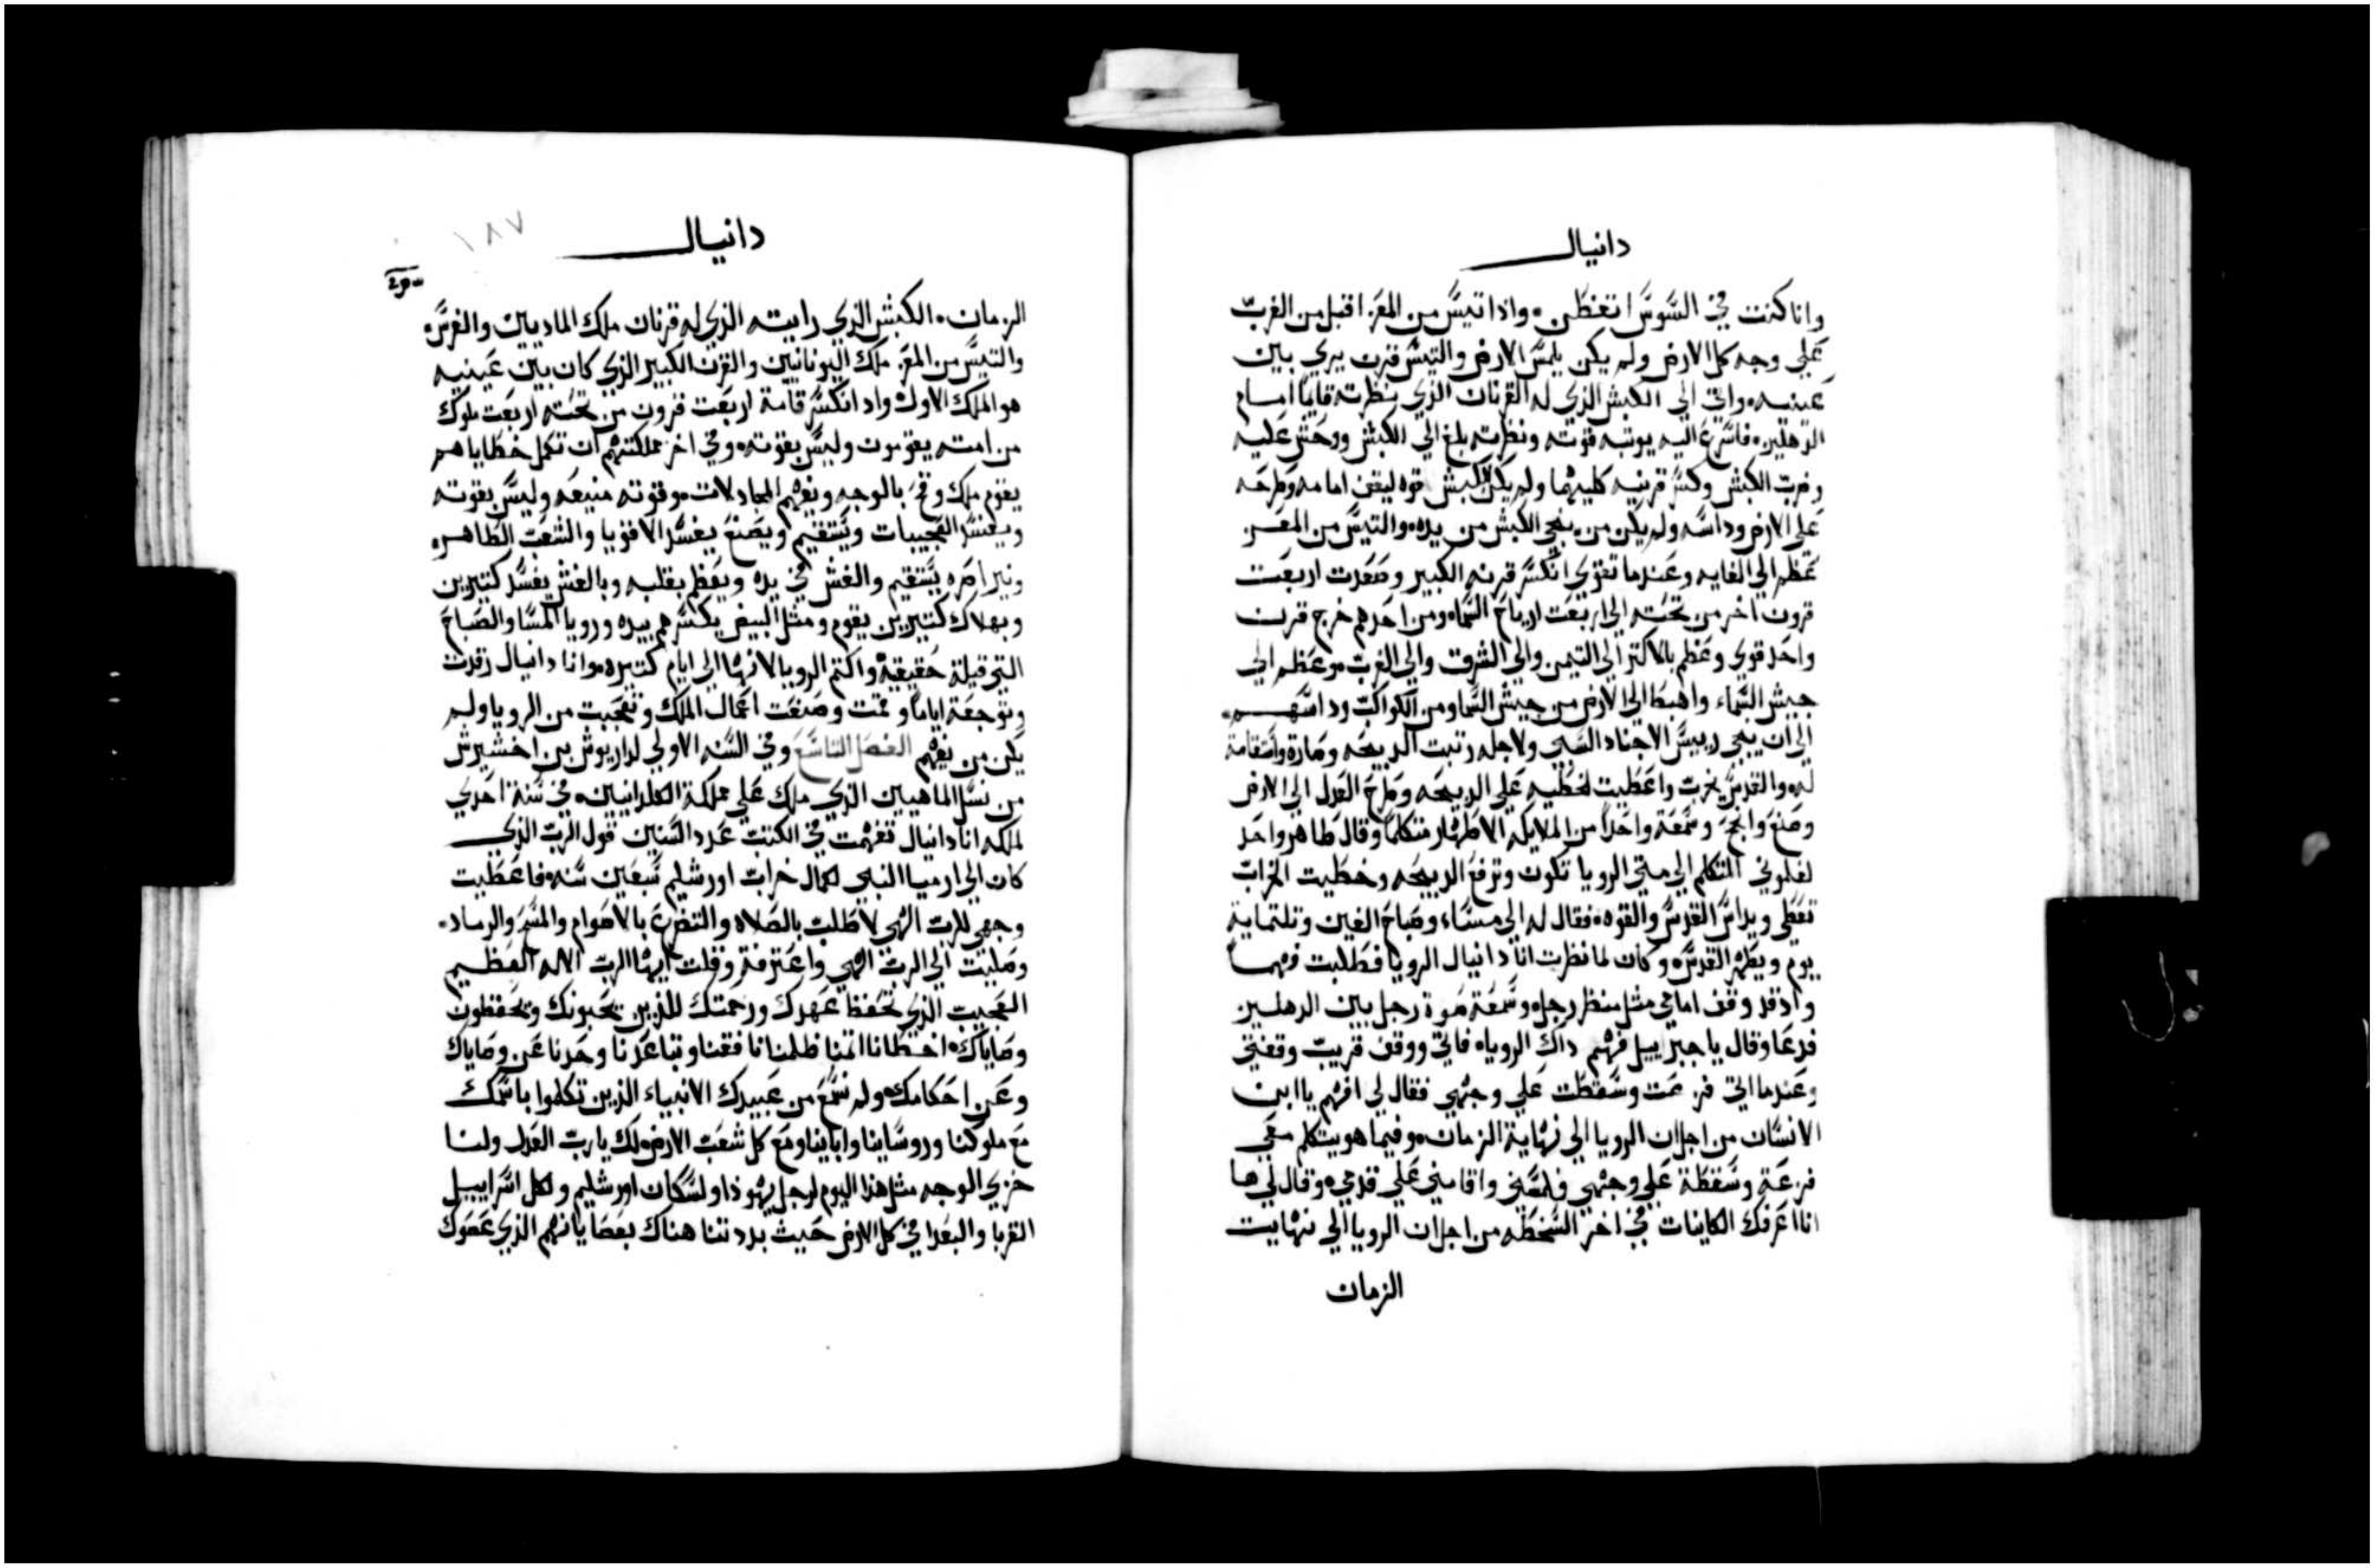 دانيال
وانا كنت في السوس اتفطن واذا تيس من المعز اقبل من الغرب
علي وجه كل الارض ولم يكن يلمس الارض والتيس قرن يري بين
عينيه واتي الي الكبش الذي له القرنان الذي نظرته قايما امام
الدهليز فاسرع اليه بوتبه قوته ونظرته بلغ الي الكبش وحش عليه
وضرب الكبش وكسر قرنيه كليهما ولم يكن للكبش قوه ليقف امامه وطرحه
علي الارض وداسه ولم يكن من ينجي الكبش من يده والتيس من المعز
عظم الي الغايه وعندما تقوي انكسر قرنه الكبير وصعدت اربعت
قرون اخر من تحته الي اربعت ارياح السماء ومن احدهم خرج قرن
واحد قوي وعظم بالاكتر الي التيمن والي الشرق والي الغرب وعظم الي
جيش السماء واهبط الي الارض من جيش السما ومن الكواكب وداسهم
الي ان ينجي رييس الاجناد السبي ولاجله رتبت الدبيحه وصارة واستقامة
له والقدس يخرب واعطيت لخطيه علي الدبيحه وطرح العدل الي الارض
وصنع وانجح وسمعة واحدا من الملايكه الاطهار متكلما وقال طاهر واحد
لفلوني المتكلم الي متي الرويا تكون وترفع الدبيحه وخطيت الخراب
تعطي ويداس القدس والقوه فقال له الي مساء وصباح الفين وتلتماية
يوم ويطهر القدس وكان لما نظرت انا دانيال الرويا فطلبت فهما
واذ قد وقف امامي مثل منظر رجل وسمعة صوة رجل بين الدهلين
فدعا وقال يا جبراييل فهم داك الرويا فاتي ووقف قريب وقفتي
وعندما اتي فزعت وسقطت علي وجهي فقال لي افهم يا ابن
الانسان من اجل ان الرويا الي نهاية الزمان وفيما هو يتكلم معي
فزعة وسقطة علي وجهي فلمسني واقامني علي قدمي وقال لي ها
انا اعرفك الكاينات في اخر السخطه من اجل ان الرويا الي نهايت
الزمان
دانيال
١٨٧
الزمان الكبش الذي رايته الذي له قرنان ملك الماديين والفرس
والتيس من المعز ملك اليونانيين والقرن الكبير الذي كان بين عينيه
هو الملك الاول واد انكسر قامة اربعت قرون من تحته اربعت ملوك
من امته يقومون وليس بقوته وفي اخر مملكتهم ان تكمل خطاياهم
يقوم ملك وقح بالوجه ويفهم المجادلات وقوته منيعه وليس بقوته
ويفسد العجيبات ويستقيم ويصنع يفسد الاقويا والشعب الطاهر
ونير اصره يستقيم والغش في يده ويعظم بقلبه وبالغش يفسد كتيرين
وبهلاك كتيرين يقوم ومثل البيض يكسرهم بيده ورويا المسا والصباح
التي قيلة حقيقية واكتم الرويا لانها الي ايام كتيره وانا دانيال رقدت
وتوجعة اياما وقمت وصنعت اعمال الملك وتعجبت من الرويا ولم
يكن من يفهم الفصل التاسع وفي السنه الاولي لداريوش بن اخشيرش
من نسل الماهيين الذي ملك علي مملكة الكلدانيين في سنة احدي
لملكه انا دانيال تفهمت في الكتب عدد السنين قول الرب الذي
كان الي ارميا النبي لكمال خراب اورشليم سبعين سنه فاعطيت
وجهي للرب الهي لاطلب بالصلاه والتضرع بالاصوام والمسح والرماد
وصليت الي الرب الهي واعترفة وقلت ايها الرب الاله العظيم
العجيب الذي تحفظ عهدك ورحمتك للذين يحبونك ويحفظون
وصاياك اخطانا اتمنا ظلمنا نافقنا وتباعدنا وحدنا عن وصاياك
وعن احكامك ولم نسمع من عبيدك الانبياء الذين تكلموا باسمك
مع ملوكنا وروساينا واباينا ومع كل شعب الارض لك يارب العدل ولنا
خزي الوجه مثل هذا اليوم لرجل يهوذا ولسكان اورشليم ولكل اسراييل
القربا والبعدا في كل الارض حيث بددتنا هناك بعصيانهم الذي عصوك